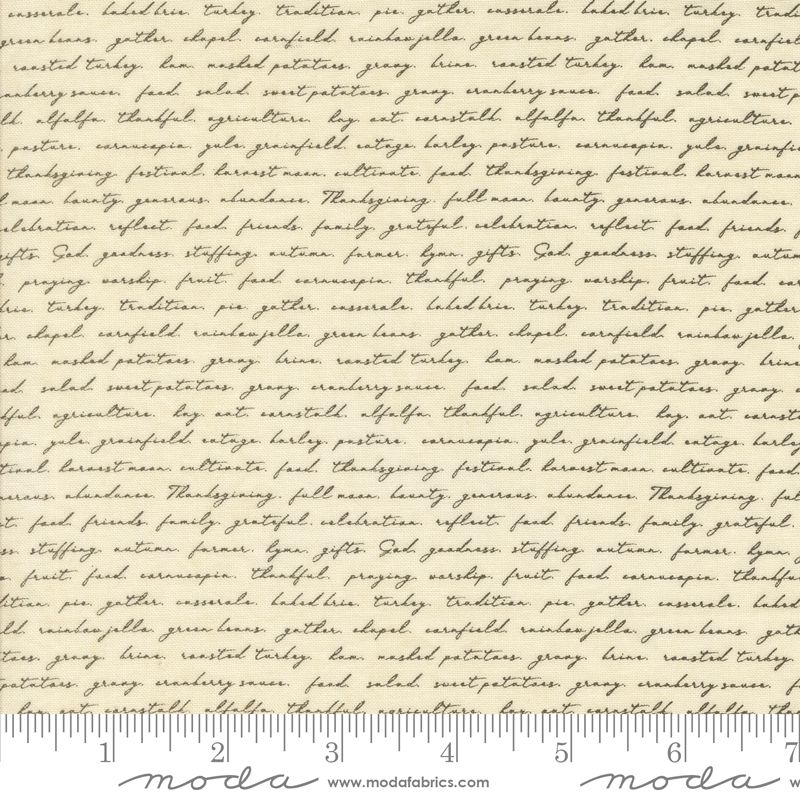 casserole. baked brie. turkey. tradition. pie. gather. casserole. baked brie. turkey.
green beans. gather. chapel. cornfield. rainbow jello. green beans. gather. chapel.
roasted turkey. ham. mashed potatoes. gravy. brine. roasted turkey. ham. mashed
cranberry sauce. food. salad. sweet potatoes. gravy. cranberry sauce. food. salad. sweet
alfalfa. thankful. agriculture. hay. oat. cornstalk. alfalfa. thankful. agriculture.
pasture. cornucopia. yule. grainfield. cotage. barley. pasture. cornucopia. yule.
thanksgiving. festival. harvest moon. cultivate. food. thanksgiving. festival. harvest moon
moon. bounty. generous. abundance. Thanksgiving. full moon. bounty. generous. abundance.
celebration. reflect. food. friends. family. grateful. celebration. reflect. food. friends.
gifts. God. goodness. stuffing. autumn. farmer. hymn. gifts. God. goodness. stuffing.
praying. worship. fruit. food. cornucopia. thankful. praying. worship. fruit. food.
brie. turkey. tradition. pie. gather. casserole. baked brie. turkey. tradition. pie. gather
chapel. cornfield. rainbow jello. green beans. gather. chapel. cornfield. rainbow jello.
ham. mashed potatoes. gravy. brine. roasted turkey. ham. mashed potatoes. gravy. brine
salad. sweet potatoes. gravy. cranberry sauce. food. salad. sweet potatoes. gravy.
agriculture. hay. oat. cornstalk. alfalfa. thankful. agriculture. hay. oat.
yule. grainfield. cotage. barley. pasture. cornucopia. yule. grainfield. cotage.
harvest moon. cultivate. food. thanksgiving. festival. harvest moon. cultivate. food
abundance. Thanksgiving. full moon. bounty. generous. abundance. Thanksgiving.
food. friends. family. grateful. celebration. reflect. food. friends. family. grateful.
stuffing. autumn. farmer. hymn. gifts. God. goodness. stuffing. autumn. farmer. hymn.
fruit. food. cornucopia. thankful. praying. worship. fruit. food. cornucopia.
pie. gather. casserole. baked brie. turkey. tradition. pie. gather. casserole. baked
rainbow jello. green beans. gather. chapel. cornfield. rainbow jello. green beans.
gravy. brine. roasted turkey. ham. mashed potatoes. gravy. brine. roasted turkey.
potatoes. gravy. cranberry sauce. food. salad. sweet potatoes. gravy. cranberry sauce.
hay. oat. cornstalk. alfalfa. thankful. agriculture. hay. oat. cornstalk. alfalfa.
1 2 3 4 5 6 7
moda www.modafabrics.com moda w